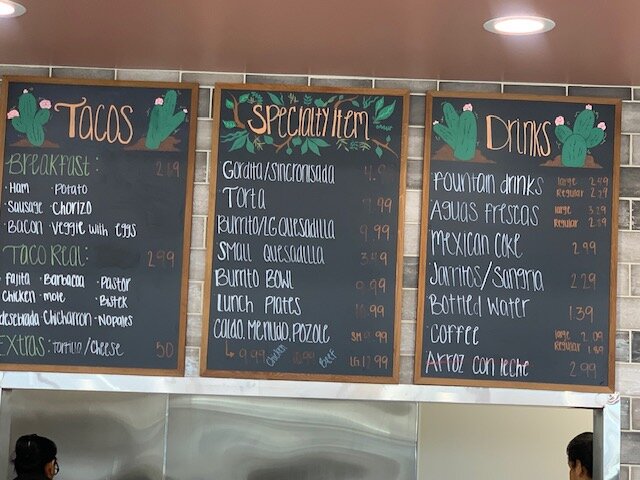 TACOS
Breakfast: 2.19
·Ham ·Potato
·Sausage ·Chorizo
·Bacon ·Veggie with eggs
Taco Real: 2.99
·Fajita ·Barbacoa ·Pastor
·Chicken ·Mole ·Bistek
·deshebrada ·Chicharron ·Nopales
Extras: Tortillo/Cheese 50
Specialty Item
Gordita/Sincronisada
Torta
Burrito/LG Quesadilla 9.99
Small Quesadilla
Burrito Bowl 9.99
Lunch Plates
Caldo, Menudo, Pozole SM
9.99 Chicken Beef LG 12.99
Drinks
Fountain Drinks Large 2.49
Regular
Aguas Frescas Large 3.29
Regular
Mexican Coke 2.99
Jarritos/Sangria 2.29
Bottled Water 1.39
Coffee Large 2.09
Regular 1.89
Arroz con leche 2.99